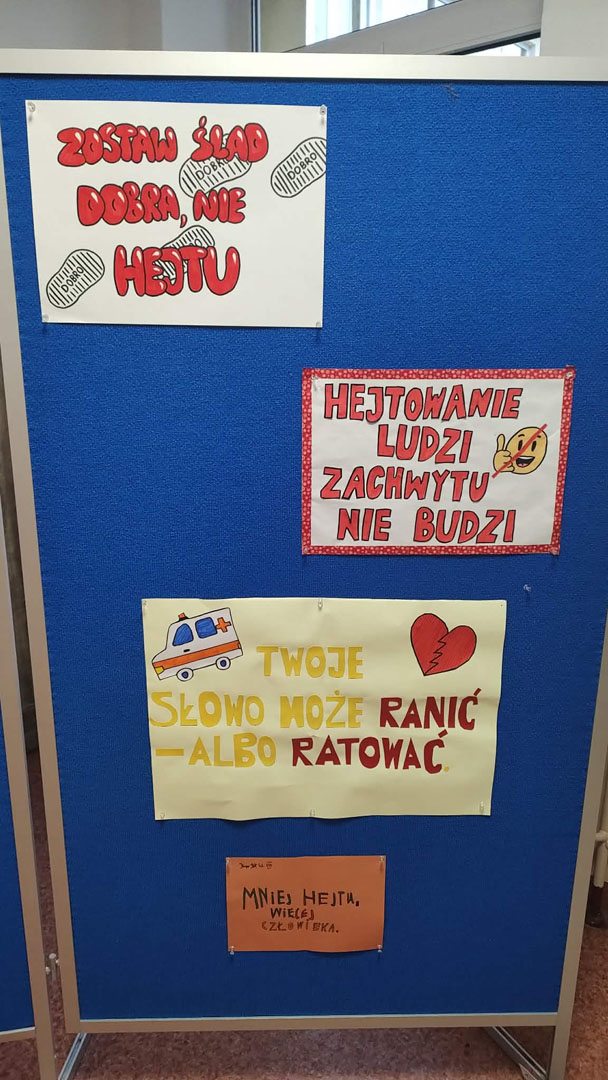 ZOSTAW ŚLAD
DOBRO
DOBRO
DOBRA, NIE
HEJTU
DOBRO
HEJTOWANIE
LUDZI
ZACHWYTU
NIE BUDZI
TWOJE
SŁOWO MOŻE RANIĆ
—ALBO RATOWAĆ.
MNIEJ HEJTU,
WIĘCEJ
CZŁOWIEKA.